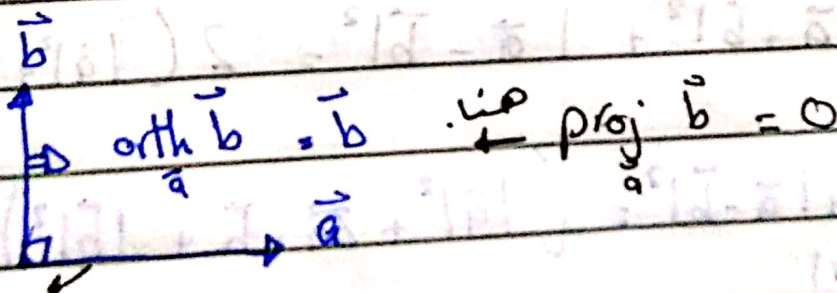 b⃗
orth_a⃗ b⃗ = b⃗ هنا. ← proj_a⃗ b⃗ = 0
a⃗